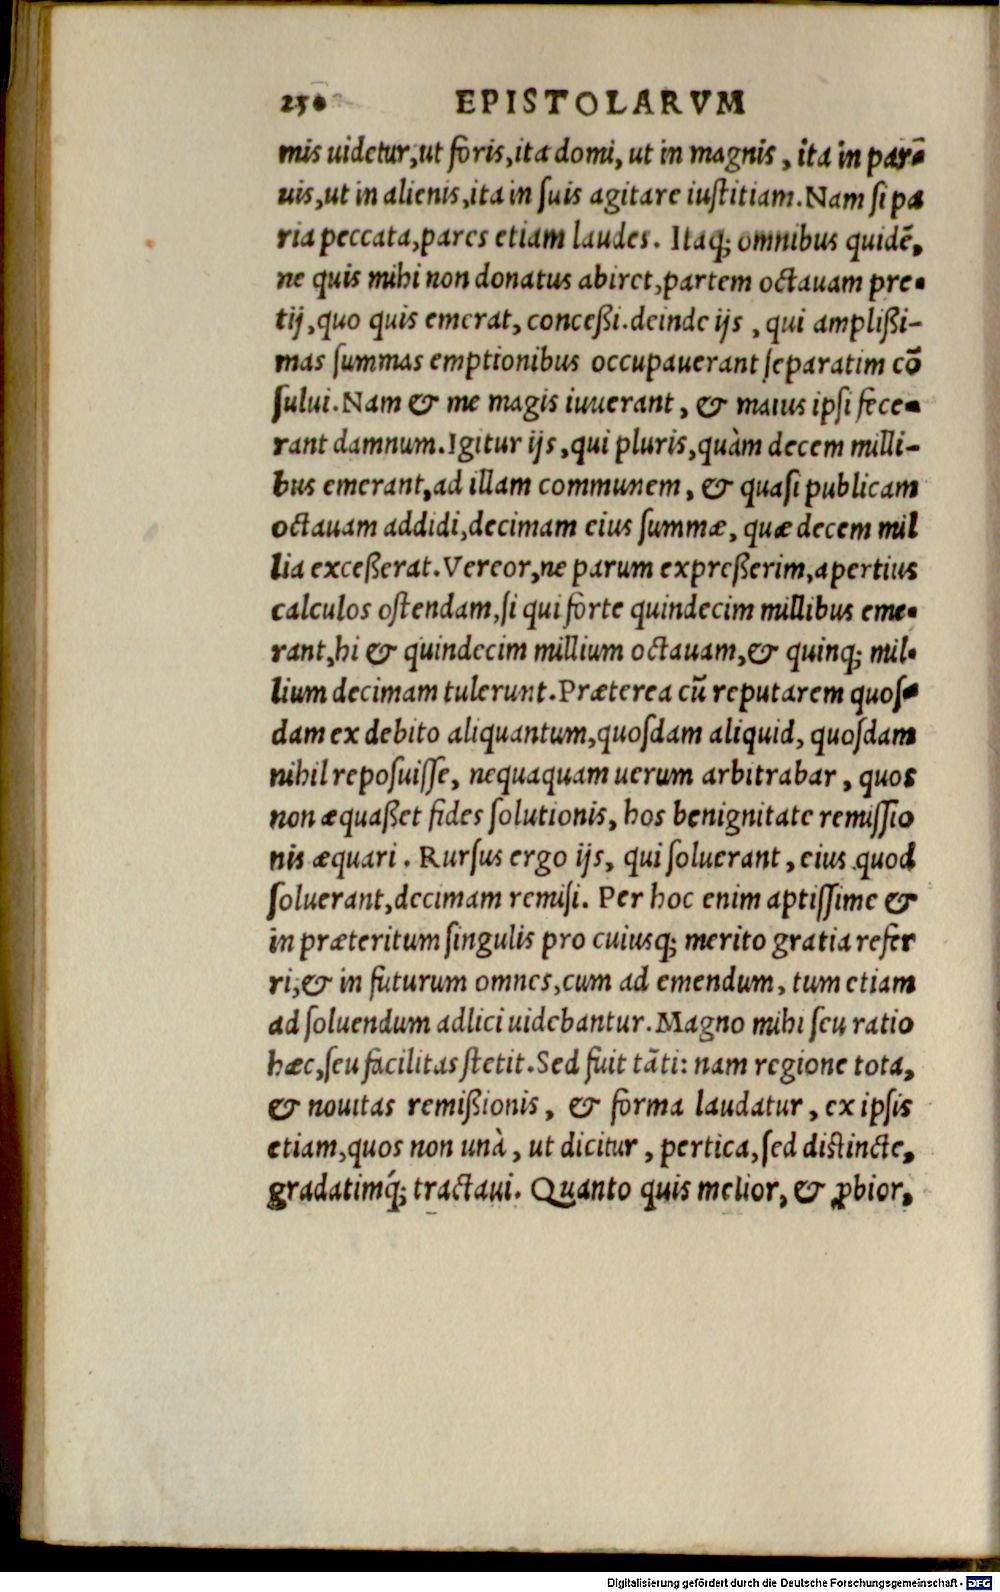 250 EPISTOLARVM
mis uidetur, ut foris, ita domi, ut in magnis, ita in par-
uis, ut in alienis, ita in ſuis agitare iuſtitiam. Nam ſi pa
ria peccata, pares etiam laudes. Itaq; omnibus quidē,
ne quis mihi non donatus abiret, partem octauam pre-
tij, quo quis emerat, conceßi. deinde ijs, qui amplißi-
mas ſummas emptionibus occupauerant ſeparatim cō
ſului. Nam & me magis iuuerant, & maius ipſi fece-
rant damnum. Igitur ijs, qui pluris, quàm decem milli-
bus emerant, ad illam communem, & quaſi publicam
octauam addidi, decimam eius ſummæ, quæ decem mil
lia exceßerat. Vereor, ne parum expreßerim, apertius
calculos oſtendam, ſi qui forte quindecim millibus eme-
rant, hi & quindecim millium octauam, & quinq; mil-
lium decimam tulerunt. Præterea cū reputarem quoſ-
dam ex debito aliquantum, quoſdam aliquid, quoſdam
nihil repoſuiſſe, nequaquam uerum arbitrabar, quos
non æquaßet fides ſolutionis, hos benignitate remiſſio
nis æquari. Rurſus ergo ijs, qui ſoluerant, eius quod
ſoluerant, decimam remiſi. Per hoc enim aptiſſime &
in præteritum ſingulis pro cuiusq; merito gratia refer
ri, & in futurum omnes, cum ad emendum, tum etiam
ad ſoluendum adlici uidebantur. Magno mihi ſeu ratio
hæc, ſeu facilitas ſtetit. Sed fuit tāti: nam regione tota,
& nouitas remißionis, & forma laudatur, ex ipſis
etiam, quos non unà, ut dicitur, pertica, ſed diſtincte,
gradatimq́; tractaui. Quanto quis melior, & ꝓbior,
Digitalisierung gefördert durch die Deutsche Forschungsgemeinschaft - DFG